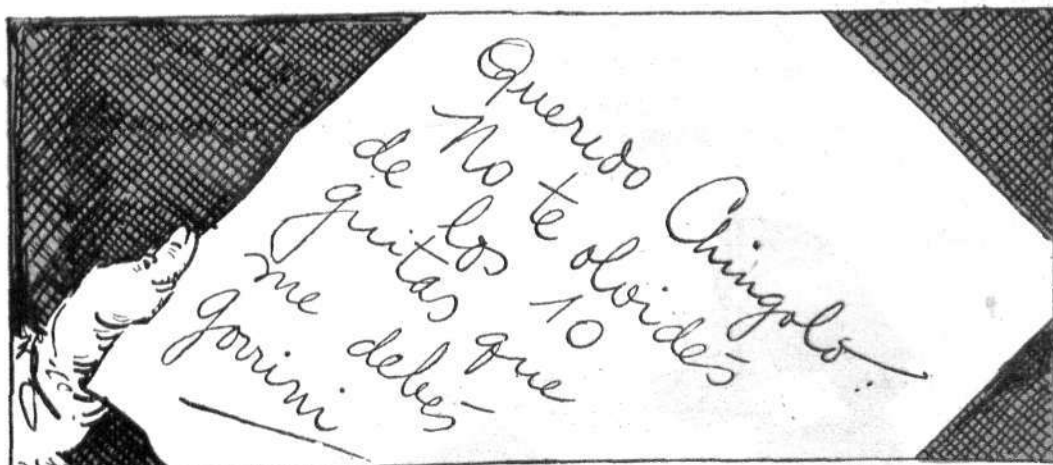 Querido Chingolo..
No te olvidés
de los 10
guitas que
me debés
Gorrini